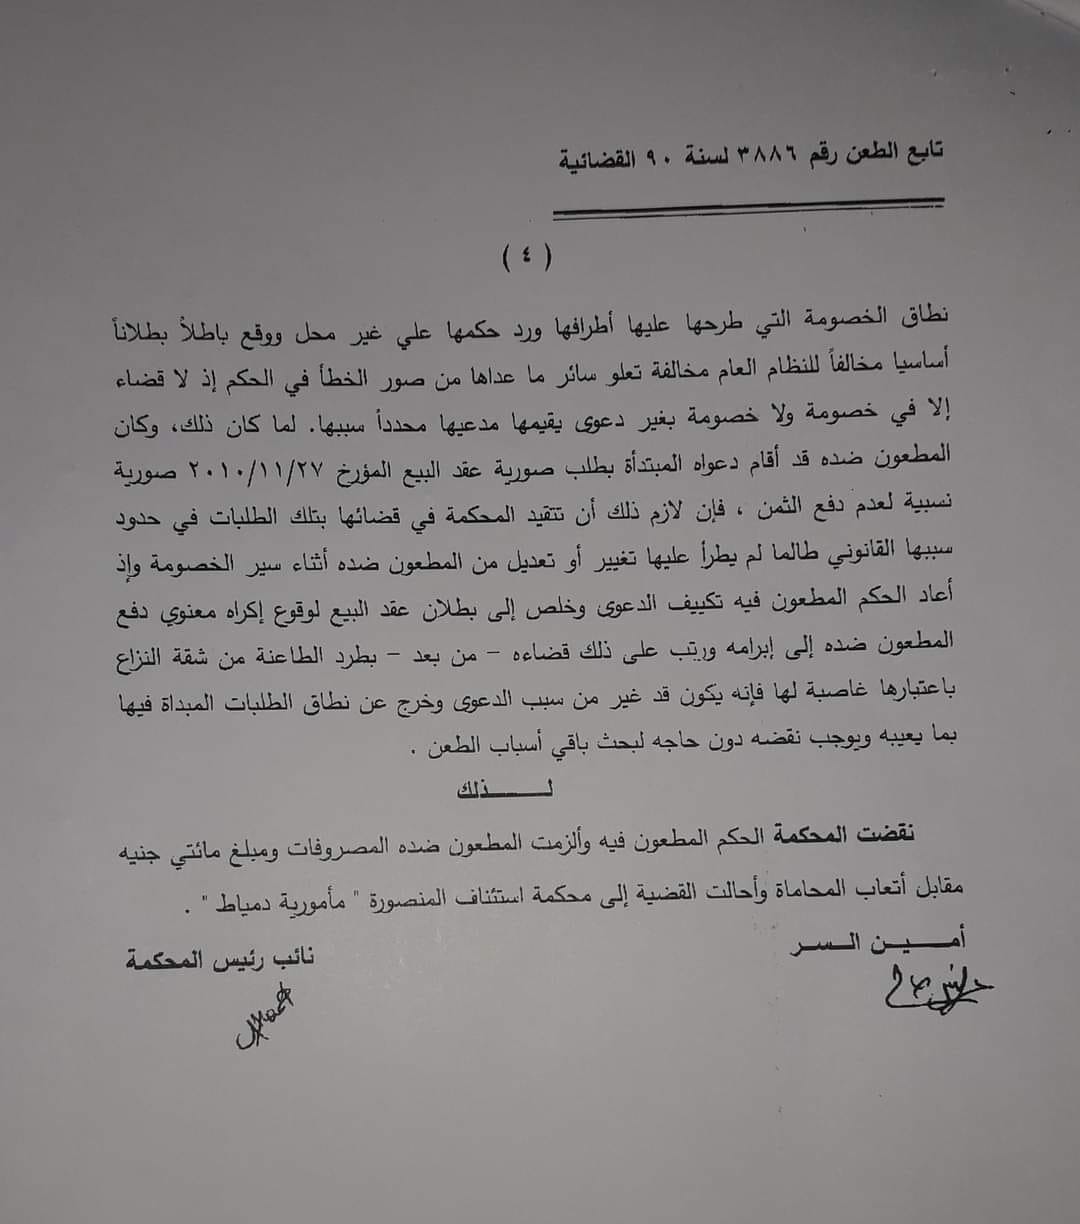 تابع الطعن رقم ٣٨٨٦ لسنة ٩٠ القضائية
( ٤ )
نطاق الخصومة التي طرحها عليها أطرافها ورد حكمها علي غير محل ووقع باطلاً بطلاناً
أساسيا مخالفاً للنظام العام مخالفة تعلو سائر ما عداها من صور الخطأ في الحكم إذ لا قضاء
إلا في خصومة ولا خصومة بغير دعوى يقيمها مدعيها محدداً سببها. لما كان ذلك، وكان
المطعون ضده قد أقام دعواه المبتدأة بطلب صورية عقد البيع المؤرخ ٢٠١٠/١١/٢٧ صورية
نسبية لعدم دفع الثمن ، فإن لازم ذلك أن تتقيد المحكمة في قضائها بتلك الطلبات في حدود
سببها القانوني طالما لم يطرأ عليها تغيير أو تعديل من المطعون ضده أثناء سير الخصومة وإذ
أعاد الحكم المطعون فيه تكييف الدعوى وخلص إلى بطلان عقد البيع لوقوع إكراه معنوي دفع
المطعون ضده إلى إبرامه ورتب على ذلك قضاءه - من بعد - بطرد الطاعنة من شقة النزاع
باعتبارها غاصبة لها فإنه يكون قد غير من سبب الدعوى وخرج عن نطاق الطلبات المبداة فيها
بما يعيبه ويوجب نقضه دون حاجه لبحث باقي أسباب الطعن .
لـــــــذلك
نقضت المحكمة الحكم المطعون فيه وألزمت المطعون ضده المصروفات ومبلغ مائتي جنيه
مقابل أتعاب المحاماة وأحالت القضية إلى محكمة استئناف المنصورة " مأمورية دمياط " .
أمـــــين الـــسر
نائب رئيس المحكمة